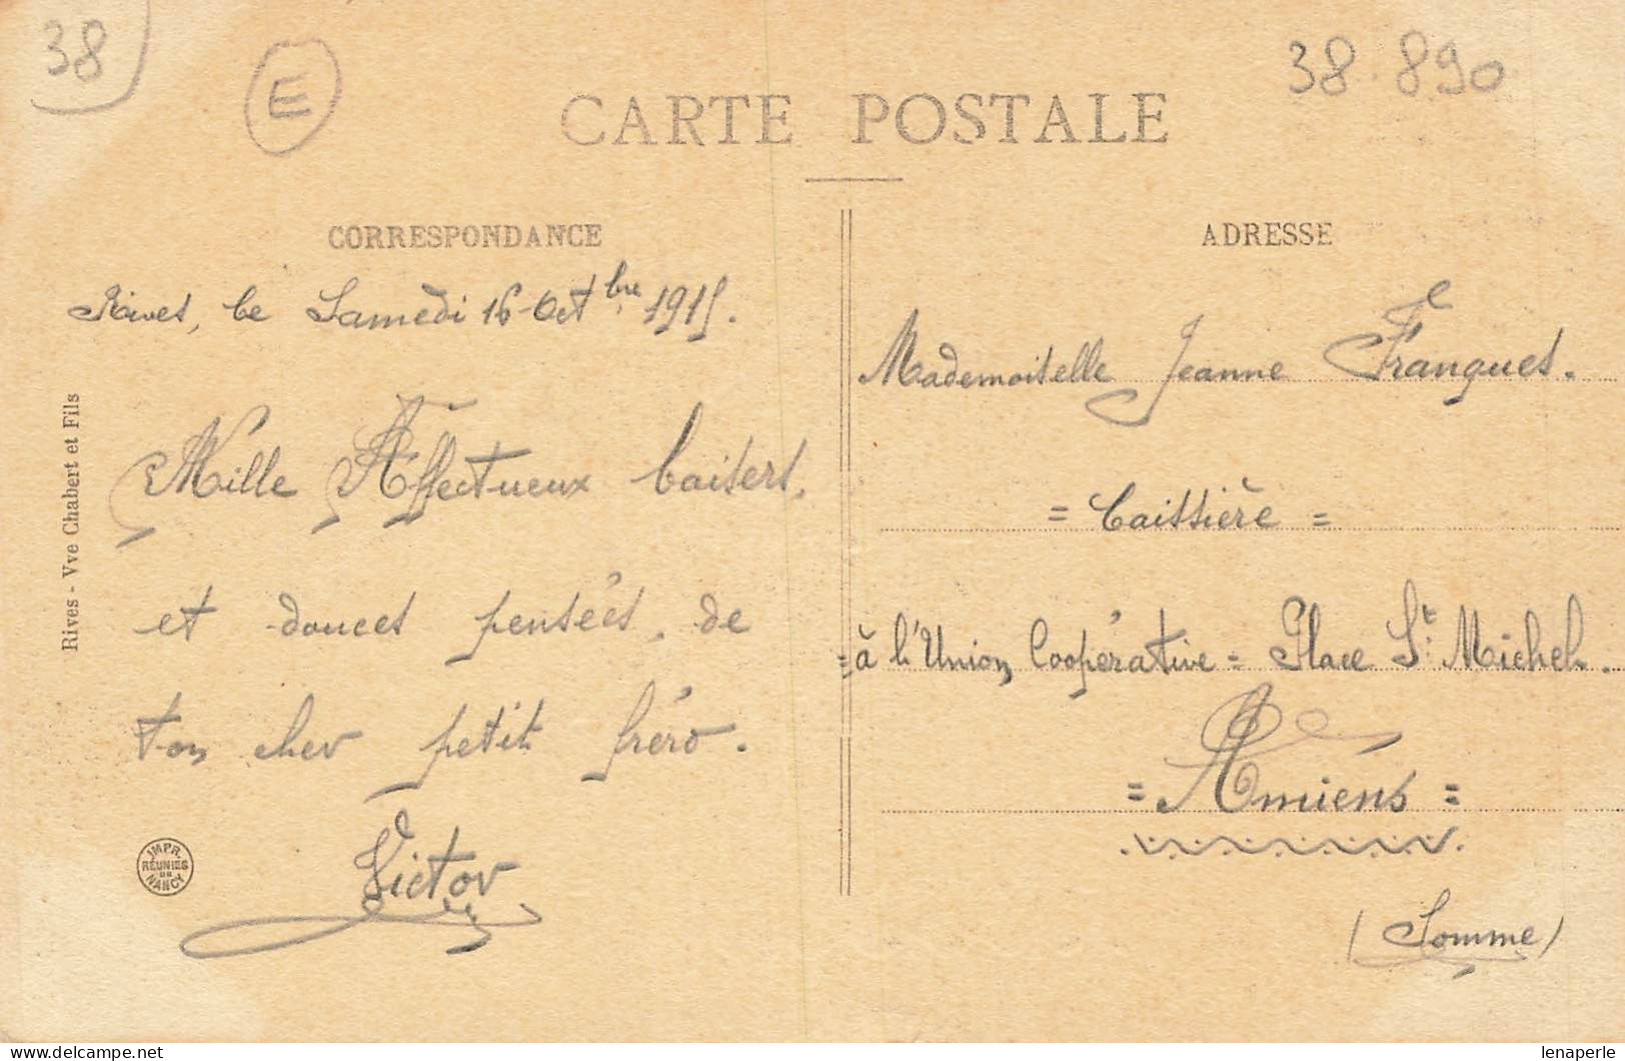 38
E
38 890
CARTE POSTALE
CORRESPONDANCE
ADRESSE
Rives, le Samedi 16 Octbre 1915.
Mille Affectueux baisers,
et douces pensées, de
ton cher petit fréro.
Victor
Mademoiselle Jeanne Franques.
= Caissière =
= à l'Union Coopérative = Place St Michel.
= Amiens =
(Somme)
Rives - Vve Chabert et Fils
IMPR.
RÉUNIES
DE
NANCY
lenaperle